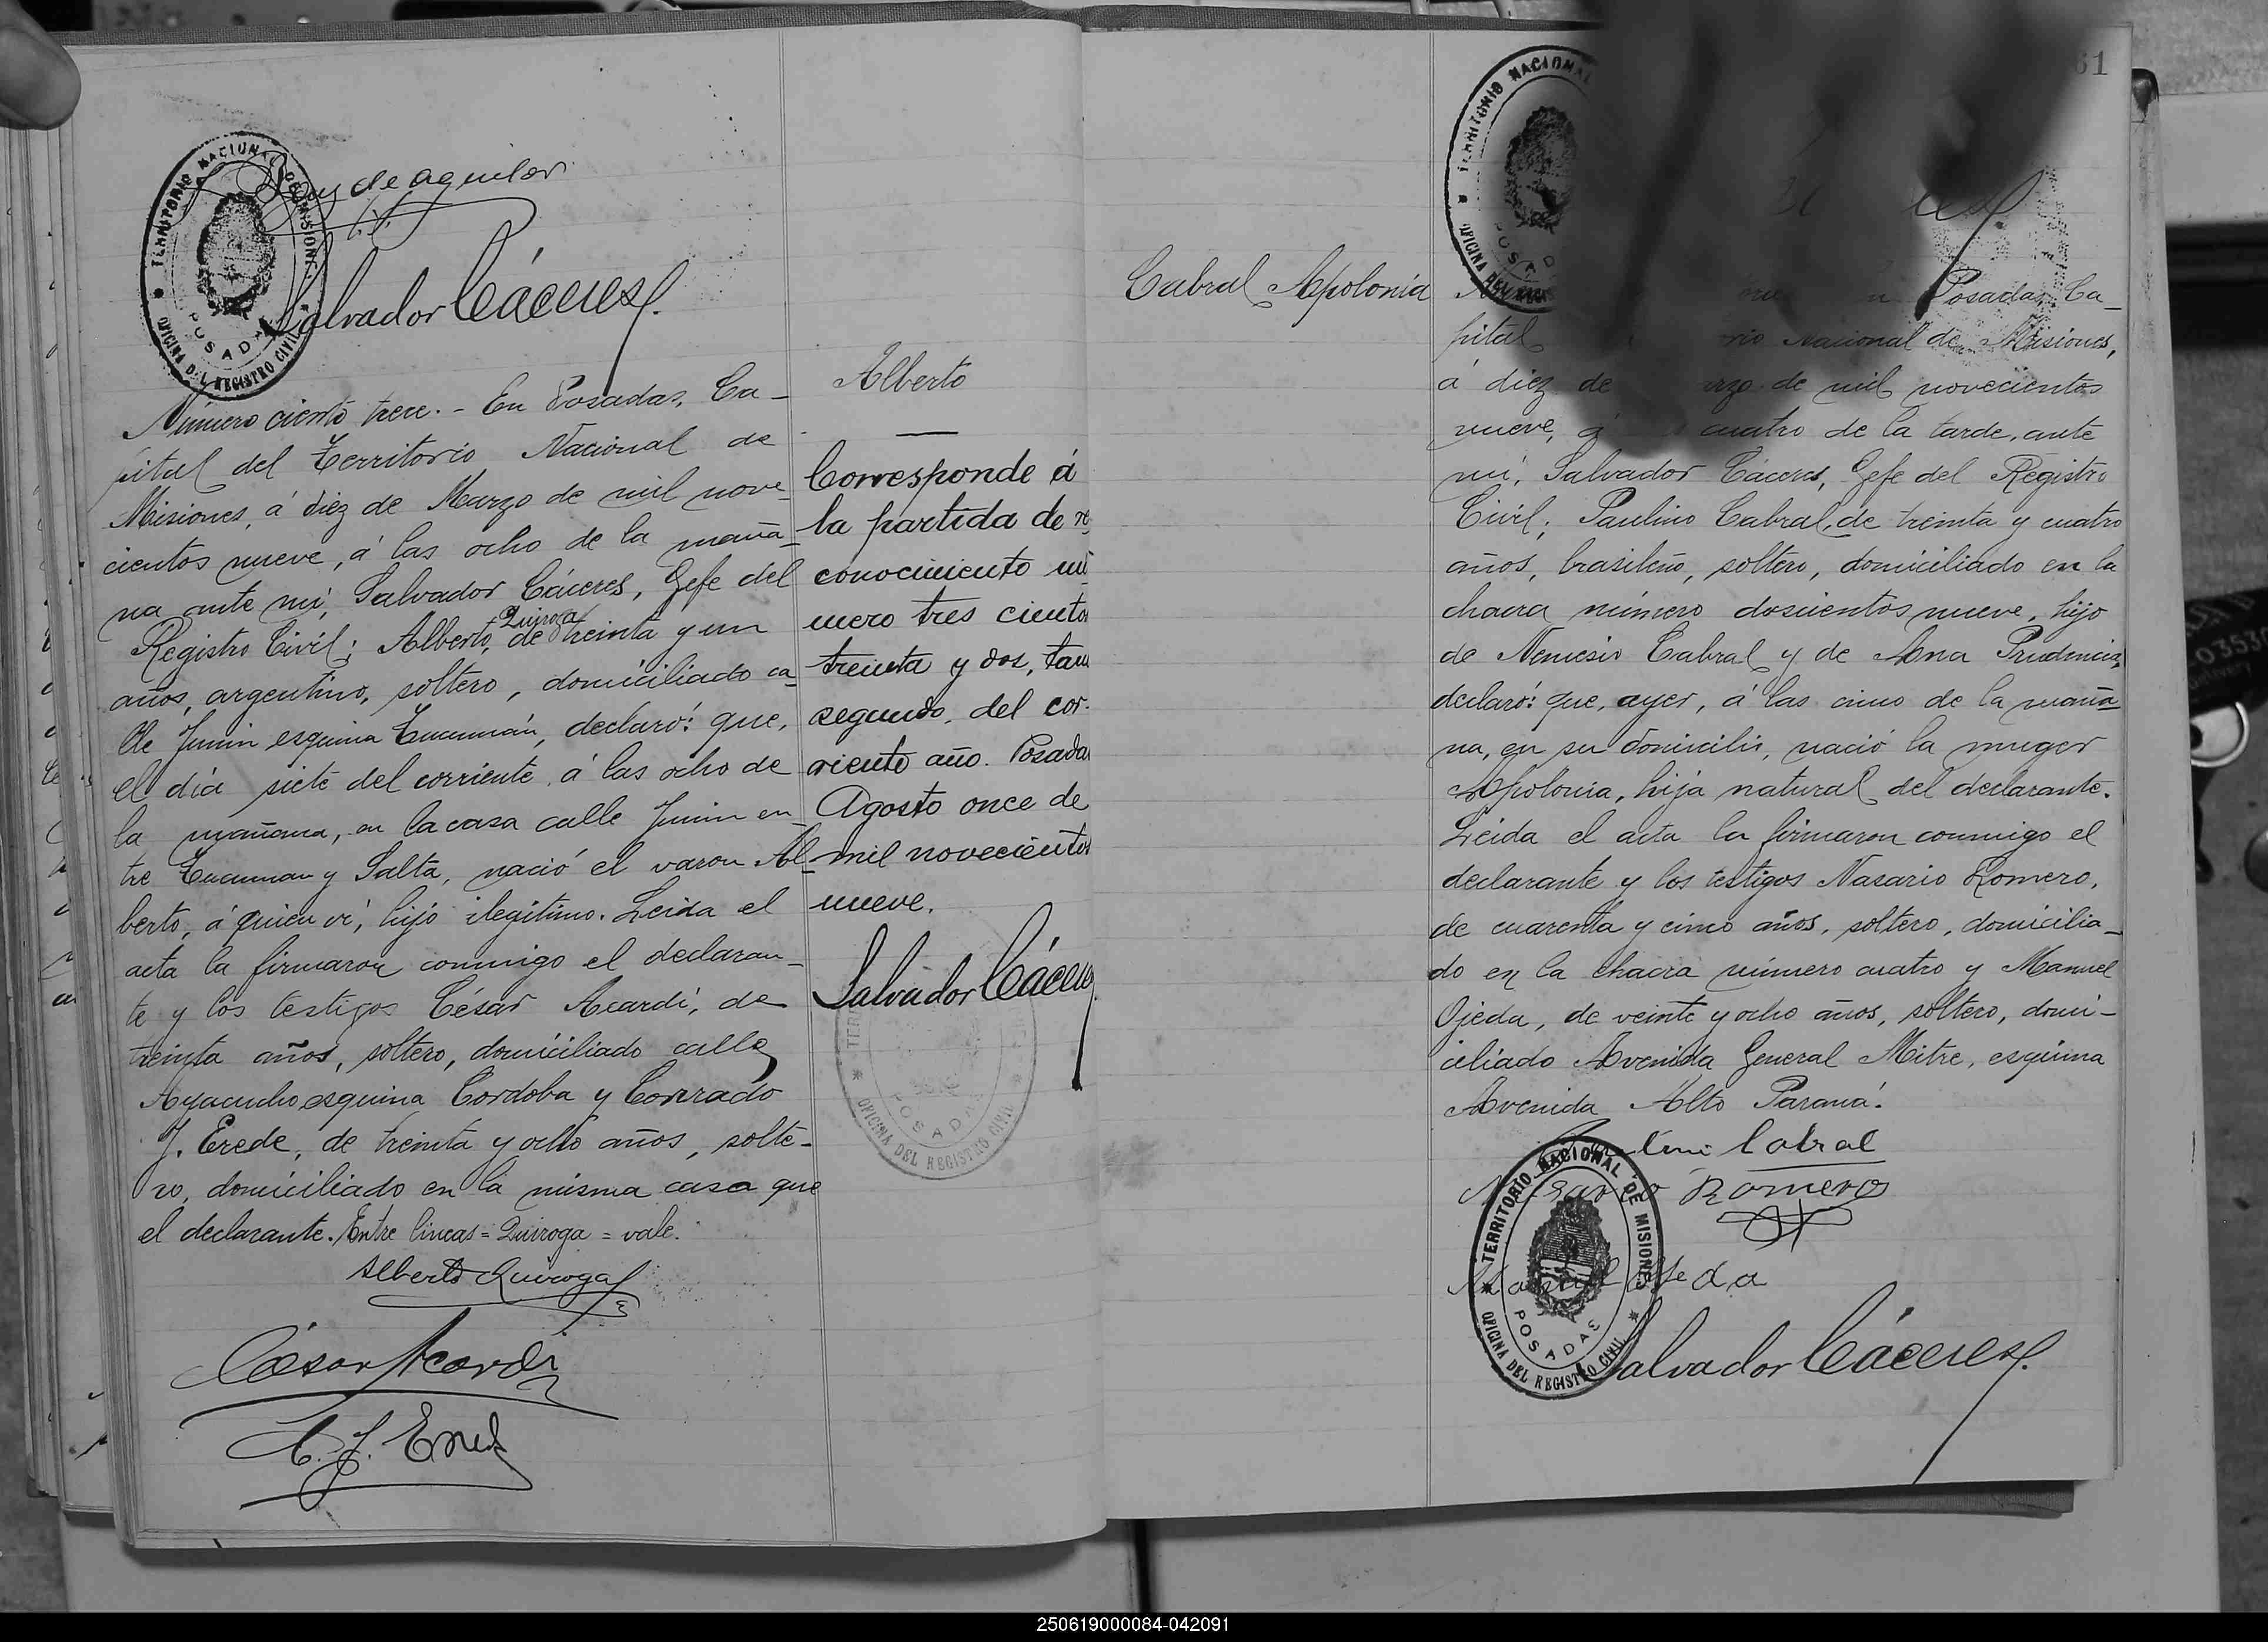 de Aguilar
Salvador Cáceres
TERRITORIO NACIONAL DE MISIONES
POSADAS
OFICINA DEL REGISTRO CIVIL
Número ciento trece.- En Posadas, Ca-
pital del Territorio Nacional de
Misiones, á diez de Marzo de mil nove-
cientos nueve, á las ocho de la maña-
na ante mí, Salvador Cáceres, Gefe del
Quiroga
Registro Civil; Alberto, de treinta y un
años, argentino, soltero, domiciliado ca-
lle Junin esquina Tucumán, declaró: que,
el día siete del corriente á las ocho de
la mañana, en la casa calle Junin en-
tre Tucuman y Salta, nació el varon Al-
berto, á quien ví, hijo ilegítimo. Leida el
acta la firmaron conmigo el declaran-
te y los testigos César Acardi, de
treinta años, soltero, domiciliado calle
Ayacucho esquina Cordoba y Conrado
J. Erede, de treinta y ocho años, solte-
ro, domiciliado en la misma casa que
el declarante. Entre lineas = Quiroga = vale.
Alberto Quiroga
César Acardi
C. J. Erede
Alberto
Corresponde á
la partida de re
conocimiento nú
mero tres ciento
treinta y dos, tom
segundo, del cor-
riente año. Posada
Agosto once de
mil novecientos
nueve.
Salvador Cáceres
POSADAS
OFICINA DEL REGISTRO CIVIL
61
TERRITORIO NACIONAL
OFICINA DEL
Cabral Apolonia
Posadas, Ca-
pital Nacional de Misiones,
á diez de de mil novecientos
nueve, á cuatro de la tarde, ante
mí, Salvador Cáceres, Gefe del Registro
Civil; Paulino Cabral, de treinta y cuatro
años, brasileño, soltero, domiciliado en la
chacra número doscientos nueve, hijo
de Nemesio Cabral y de Ana Prudencia,
declaró: que, ayer, á las cinco de la maña-
na, en su domicilio, nació la muger
Apolonia, hija natural del declarante.
Leida el acta la firmaron conmigo el
declarante y los testigos Nasario Romero,
de cuarenta y cinco años, soltero, domicilia-
do en la chacra número cuatro y Manuel
Ojeda, de veinte y ocho años, soltero, domi-
ciliado Avenida General Mitre, esquina
Avenida Alto Paraná.
Cabral
Nasario Romero
Manuel Ojeda
TERRITORIO NACIONAL DE MISIONES
POSADAS
OFICINA DEL REGISTRO CIVIL
Salvador Cáceres
250619000084-042091